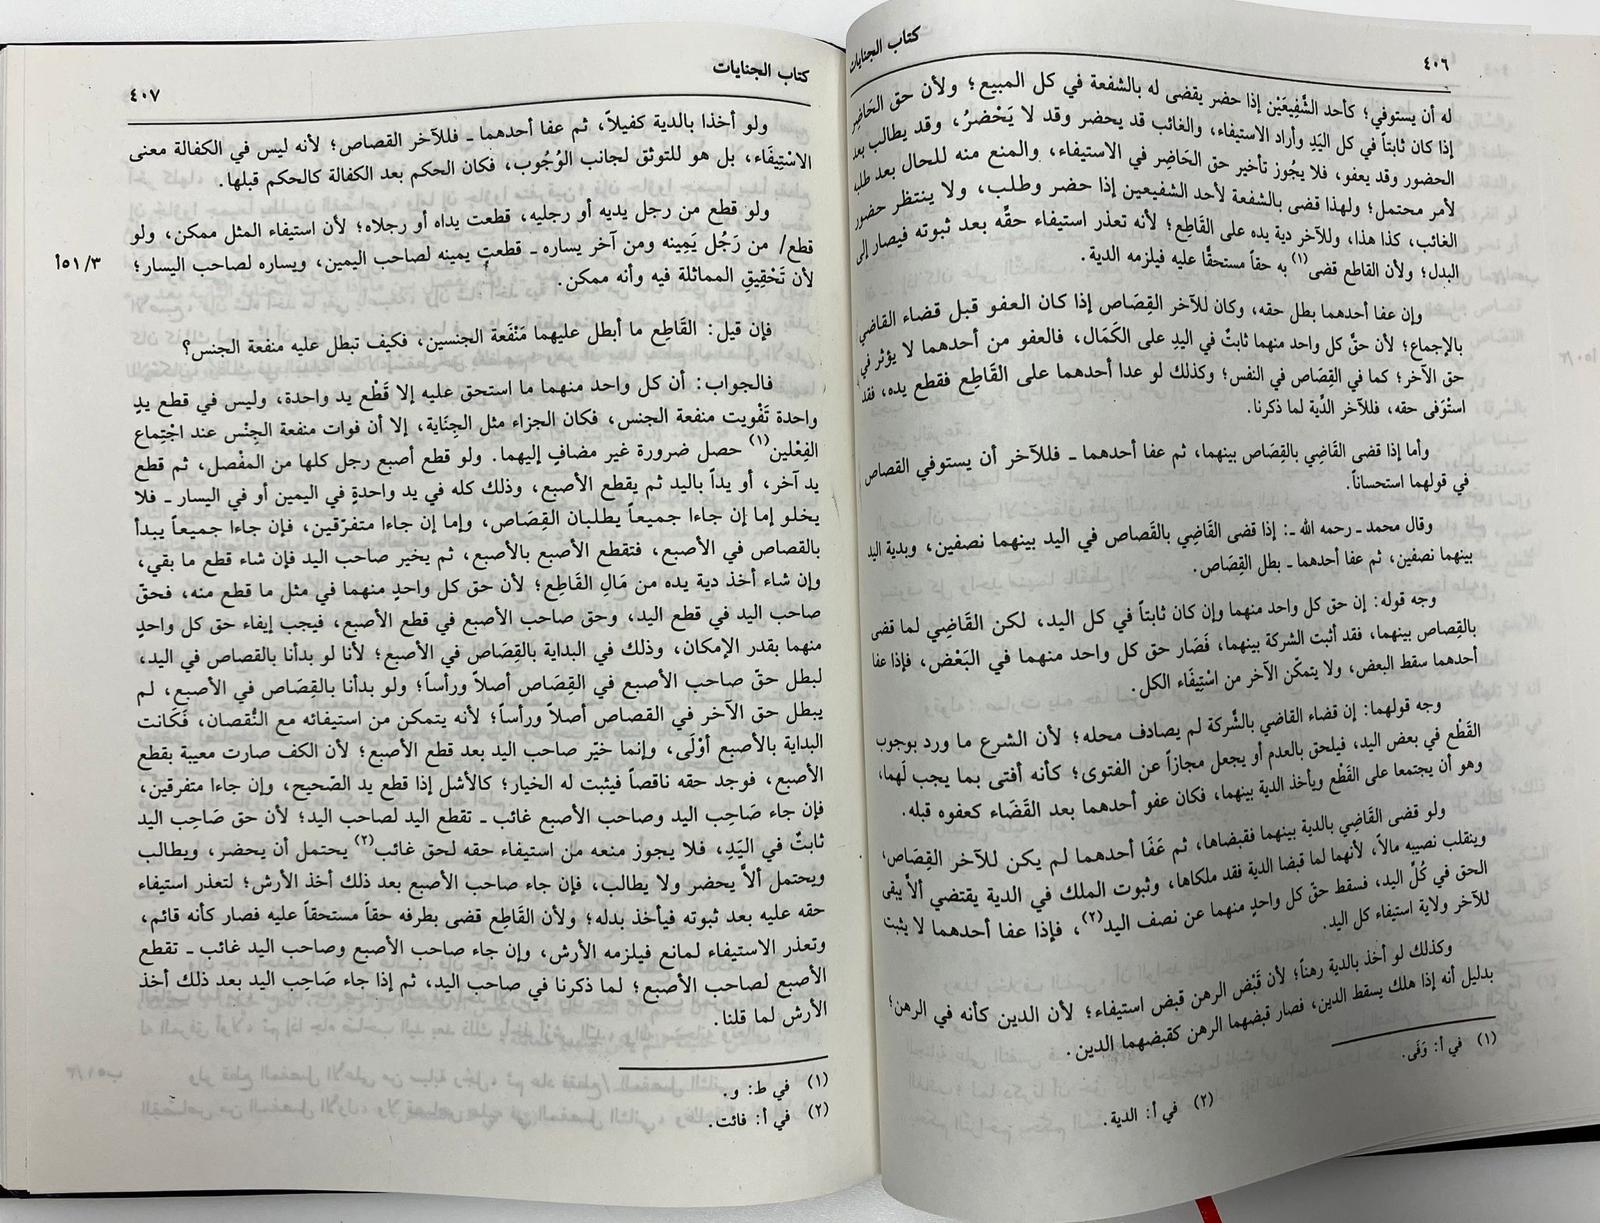 ٤٠٦
كتاب الجنايات
له أن يستوفي؛ كأحد الشَّفِيعَيْن إذا حضر يقضى له بالشفعة في كل المبيع؛ ولأن حق الحَاضِر
إذا كان ثابتاً في كل اليَدِ وأراد الاستيفاء، والغائب قد يحضر وقد لا يَحْضرُ، وقد يطالب بعد
الحضور وقد يعفو، فلا يجُوز تأخير حق الحَاضِر في الاستيفاء، والمنع منه للحال بعد طلبه
لأمر محتمل؛ ولهذا قضى بالشفعة لأحد الشفيعين إذا حضر وطلب، ولا ينتظر حضور
الغائب، كذا هذا، وللآخر دية يده على القَاطِع؛ لأنه تعذر استيفاء حقِّه بعد ثبوته فيصار إلى
البدل؛ ولأن القاطع قضى(١) به حقاً مستحقًّا عليه فيلزمه الدية.
وإن عفا أحدهما بطل حقه، وكان للآخر القِصَاص إذا كان العفو قبل قضاء القاضي
بالإجماع؛ لأن حقَّ كل واحد منهما ثابتٌ في اليدِ على الكَمَال، فالعفو من أحدهما لا يؤثر في
حق الآخر؛ كما في القِصَاص في النفس؛ وكذلك لو عدا أحدهما على القَاطِع فقطع يده، فقد
استَوْفى حقه، فللآخر الدِّية لما ذكرنا.
وأما إذا قضى القَاضِي بالقِصَاص بينهما، ثم عفا أحدهما ـ فللآخر أن يستوفي القصاص
في قولهما استحساناً.
وقال محمد ـ رحمه الله ـ: إذا قضى القَاضِي بالقَصاص في اليد بينهما نصفين، وبدية اليد
بينهما نصفين، ثم عفا أحدهما ـ بطل القِصَاص.
وجه قوله: إن حق كل واحد منهما وإن كان ثابتاً في كل اليد، لكن القَاضِي لما قضى
بالقِصاص بينهما، فقد أثبت الشركة بينهما، فَصَار حق كل واحد منهما في البَعْض، فإذا عفا
أحدهما سقط البعض، ولا يتمكّن الآخر من اسْتِيفَاء الكل.
وجه قولهما: إن قضاء القاضي بالشَّركة لم يصادف محله؛ لأن الشرع ما ورد بوجوب
القَطْع في بعض اليد، فيلحق بالعدم أو يجعل مجازاً عن الفتوى؛ كأنه أفتى بما يجب لَهما،
وهو أن يجتمعا على القَطْع ويأخذ الدية بينهما، فكان عفو أحدهما بعد القَضَاء كعفوه قبله.
ولو قضى القَاضِي بالدية بينهما فقبضاها، ثم عَفَا أحدهما لم يكن للآخر القِصَاص،
وينقلب نصيبه مالاً، لأنهما لما قبضا الدية فقد ملكاها، وثبوت الملك في الدية يقتضي ألاَّ يبقى
الحق في كُلِّ اليد، فسقط حقّ كل واحدٍ منهما عن نصف اليد(٢)، فإذا عفا أحدهما لا يثبت
للآخر ولاية استيفاء كل اليد.
وكذلك لو أخذ بالدية رهناً؛ لأن قَبْض الرهن قبض استيفاء؛ لأن الدين كأنه في الرهن؛
بدليل أنه إذا هلك يسقط الدين، فصار قبضهما الرهن كقبضهما الدين.
(١) في أ: وَفَى.
(٢) في أ: الدية.
كتاب الجنايات
٤٠٧
ولو أخذا بالدية كفيلاً، ثم عفا أحدهما ـ فللآخر القصاص؛ لأنه ليس في الكفالة معنى
الاسْتِيفَاء، بل هو للتوثق لجانب الوُجُوب، فكان الحكم بعد الكفالة كالحكم قبلها.
ولو قطع من رجل يديه أو رجليه، قطعت يداه أو رجلاه؛ لأن استيفاء المثل ممكن، ولو
قطع/ من رَجُل يَمِينه ومن آخر يساره ـ قطعت يمينه لصاحب اليمين، ويساره لصاحب اليسار؛
٣/ ٥١أ
لأن تَحْقِيقِ المماثلة فيه وأنه ممكن.
فإن قيل: القَاطِع ما أبطل عليهما مَنْفَعة الجنسين، فكيف تبطل عليه منفعة الجنس؟
فالجواب: أن كل واحد منهما ما استحق عليه إلا قَطْع يد واحدة، وليس في قطع يدٍ
واحدة تَفْويت منفعة الجنس، فكان الجزاء مثل الجِنَاية، إلا أن فوات منفعة الجِنْس عند اجْتِماع
الفِعْلين(١) حصل ضرورة غير مضافٍ إليهما. ولو قطع أصبع رجل كلها من المفْصل، ثم قطع
يد آخر، أو يداً باليد ثم يقطع الأصبع، وذلك كله في يد واحدةٍ في اليمين أو في اليسار ـ فلا
يخلو إما إن جاءا جميعاً يطلبان القِصَاص، وإما إن جاءا متفرّقين، فإن جاءا جميعاً يبدأ
بالقصاص في الأصبع، فتقطع الأصبع بالأصبع، ثم يخير صاحب اليد فإن شاء قطع ما بقي،
وإن شاء أخذ دية يده من مَالِ القَاطِع؛ لأن حق كل واحدٍ منهما في مثل ما قطع منه، فحقّ
صاحب اليد في قطع اليد، وحق صاحب الأصبع في قطع الأصبع، فيجب إيفاء حق كل واحدٍ
منهما بقدر الإمكان، وذلك في البداية بالقِصَاص في الأصبع؛ لأنا لو بدأنا بالقصاص في اليد،
لبطل حقّ صاحب الأصبع في القِصَاص أصلاً ورأساً؛ ولو بدأنا بالقِصَاص في الأصبع، لم
يبطل حق الآخر في القصاص أصلاً ورأساً؛ لأنه يتمكن من استيفائه مع النُّقصان، فَكَانت
البداية بالأصبع أوْلَى، وإنما خيّر صاحب اليد بعد قطع الأصبع؛ لأن الكف صارت معيبة بقطع
الأصبع، فوجد حقه ناقصاً فيثبت له الخيار؛ كالأشل إذا قطع يد الصّحيح، وإن جاءا متفرقين،
فإن جاء صَاحِب اليد وصاحب الأصبع غائب ـ تقطع اليد لصاحب اليد؛ لأن حق صَاحِب اليد
ثابتٌ في اليَدِ، فلا يجوز منعه من استيفاء حقه لحق غائب(٢) يحتمل أن يحضر، ويطالب
ويحتمل ألاَّ يحضر ولا يطالب، فإن جاء صاحب الأصبع بعد ذلك أخذ الأرش؛ لتعذر استيفاء
حقه عليه بعد ثبوته فيأخذ بدله؛ ولأن القَاطِع قضى بطرفه حقاً مستحقاً عليه فصار كأنه قائم،
وتعذر الاستيفاء لمانع فيلزمه الأرش، وإن جاء صاحب الأصبع وصاحب اليد غائب ـ تقطع
الأصبع لصاحب الأصبع؛ لما ذكرنا في صاحب اليد، ثم إذا جاء صَاحِب اليد بعد ذلك أخذ
الأرش لما قلنا.
(١) في ط: و.
(٢) في أ: فائت.